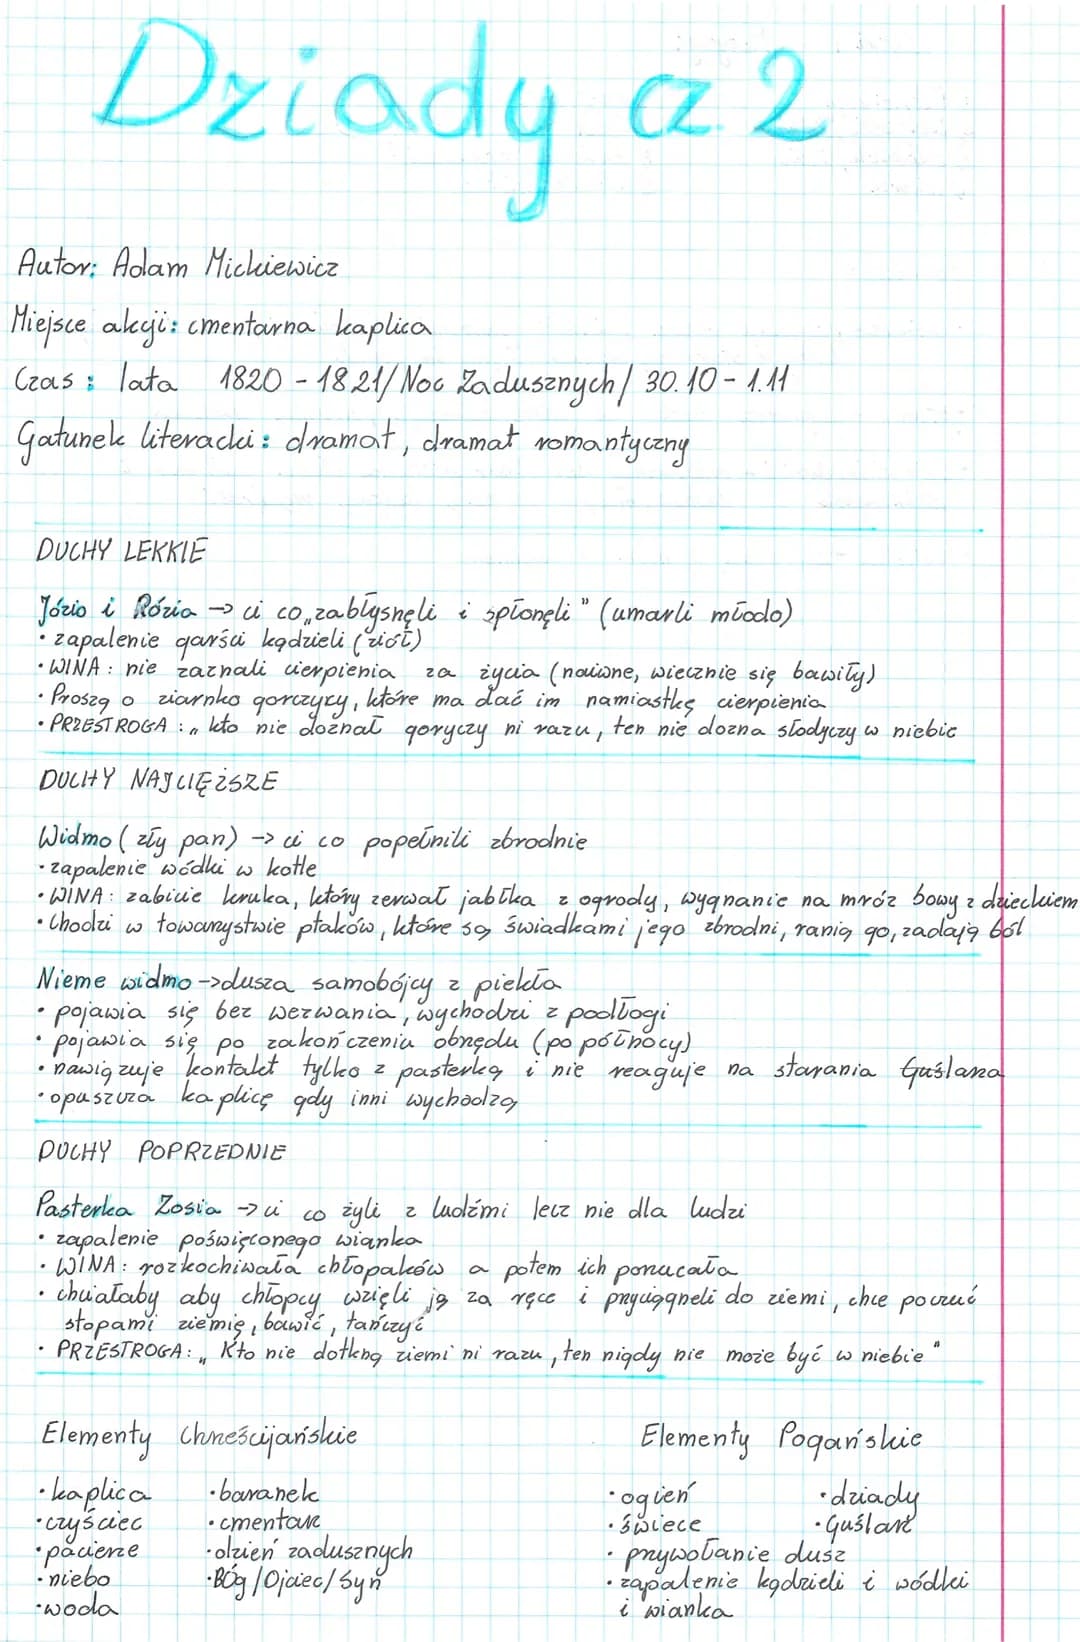 Dziady cz. 2
Autor: Adam Mickiewicz
Miejsce akcji: cmentarna kaplica
Czas: lata 1820 - 1821/ Noc Zadusznych/ 30.10 - 1.11
Gatunek literacki: dramat, dramat romantyczny
DUCHY LEKKIE
Józio i Rózia -> ci co „zabłysnęli i spłonęli" (umarli młodo)
• zapalenie garści kądzieli (ziół)
• WINA: nie zaznali cierpienia za życia (naiwne, wiecznie się bawiły)
• Proszą o ziarnko gorczycy, które ma dać im namiastkę cierpienia
• PRZESTROGA: „ kto nie doznał goryczy ni razu, ten nie dozna słodyczy w niebie
DUCHY NAJCIĘŻSZE
Widmo (zły pan) -> ci co popełnili zbrodnie
• zapalenie wódki w kotle
• WINA: zabicie kruka, który zerwał jabłka z ogrody, wygnanie na mróz bowy z dzieckiem
• Chodzi w towarzystwie ptaków, które są świadkami jego zbrodni, ranią go, zadają ból
Nieme widmo -> dusza samobójcy z piekła
• pojawia się bez wezwania, wychodzi z podłogi
• pojawia się po zakończeniu obrzędu (po północy)
• nawiązuje kontakt tylko z pasterką i nie reaguje na starania Guślarza
• opuszcza kaplicę gdy inni wychodzą
DUCHY POPRZEDNIE
Pasterka Zosia -> ci co żyli z ludźmi lecz nie dla ludzi
• zapalenie poświęconego wianka
• WINA: rozkochiwała chłopaków a potem ich porzucała
• chciałaby aby chłopcy wzięli ją za ręce i przyciągneli do ziemi, chce poczuć
stopami ziemię, bawić, tańczyć
• PRZESTROGA: „ Kto nie dotkną ziemi ni razu, ten nigdy nie może być w niebie"
Elementy Chrześcijańskie
• kaplica • baranek
• czyściec • cmentarz
• pacierze • dzień zadusznych
• niebo • BÓg/Ojciec/Syn
• woda
Elementy Pogańskie
• ogień • dziady
• świece • Guślarz
• przywołanie dusz
• zapalenie kądzieli i wódki
i wianka